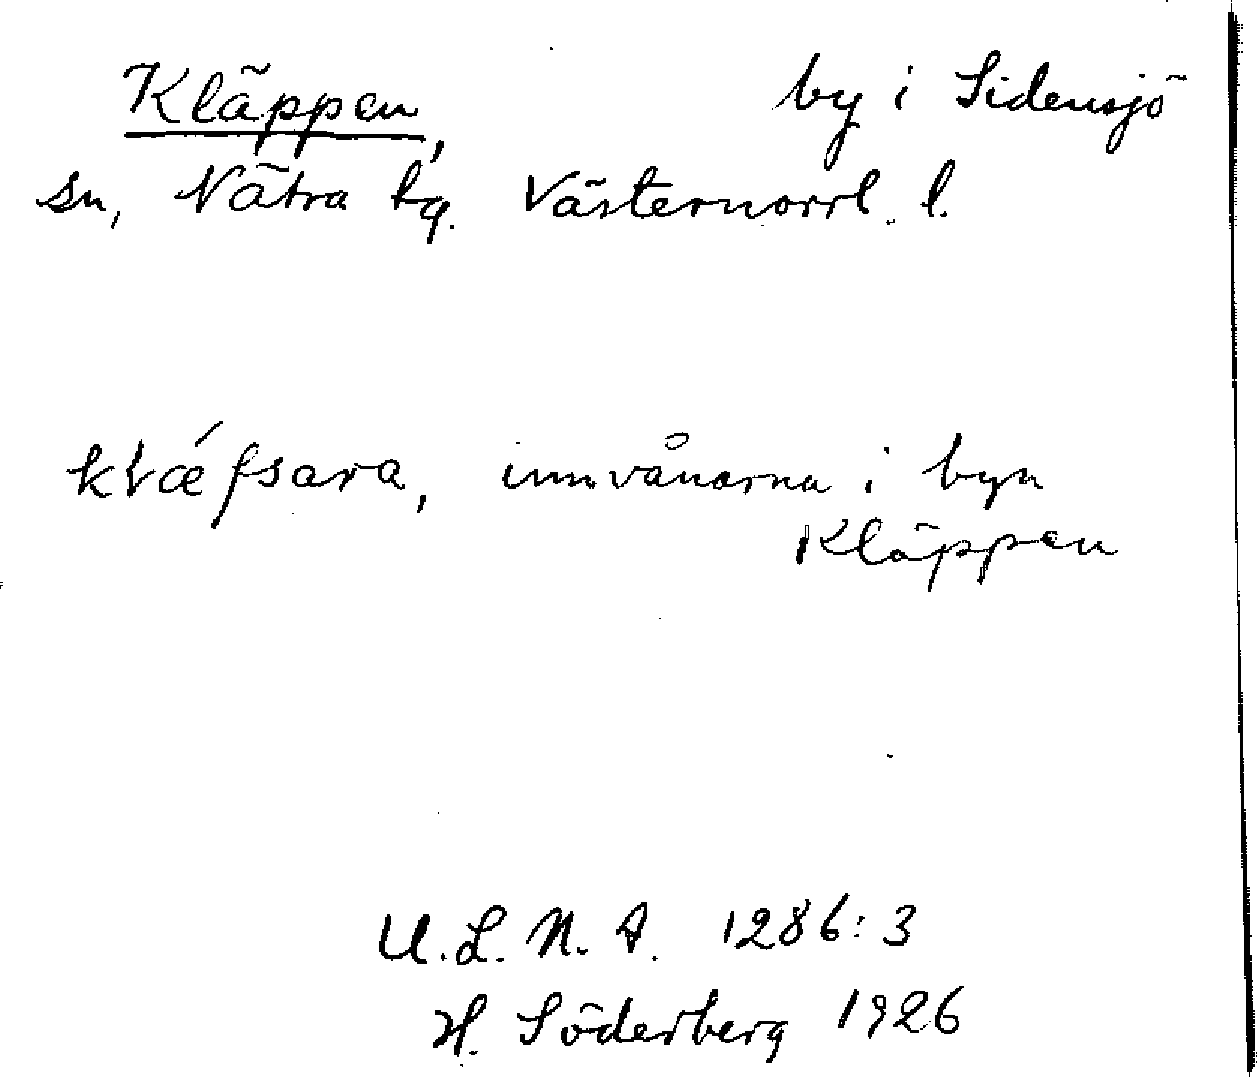 Kläppen, by i Sidensjö
sn, Nätra tg. Västernorrl. l.
innvånarna i byn
Kläppen
U.L.N.A. 1286:3
H. Söderberg 1926